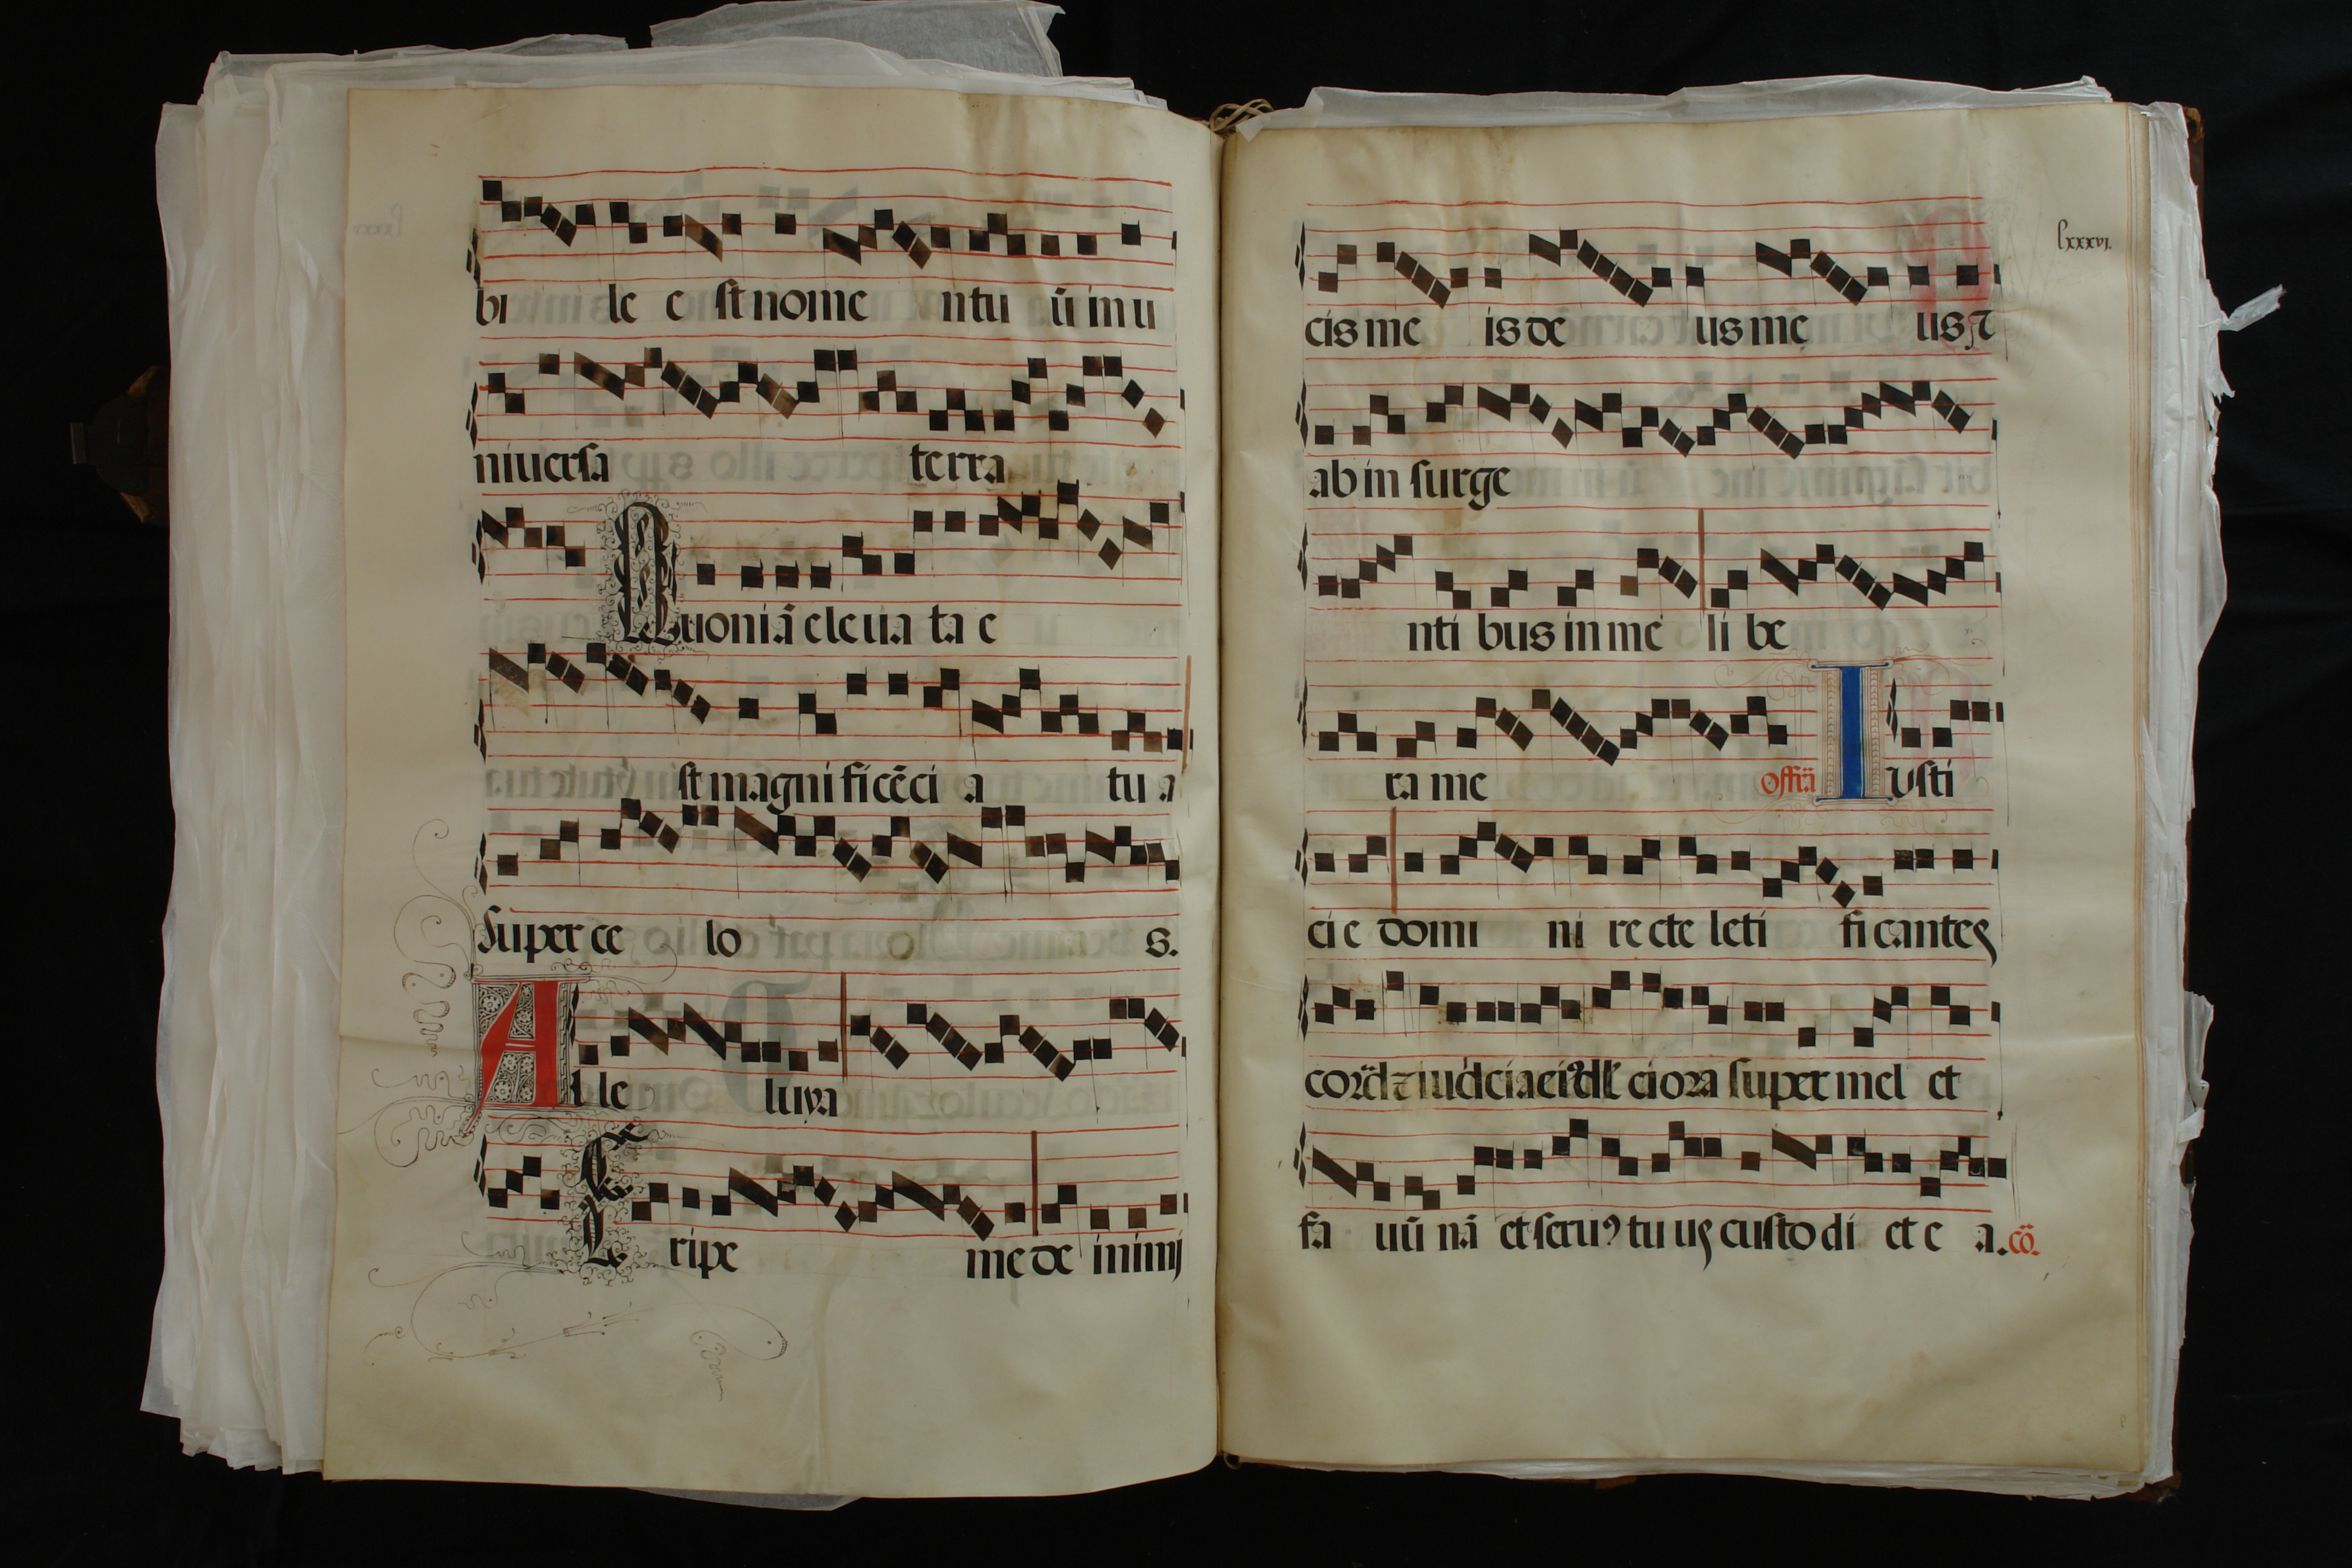 bi le e st nome n tu ū in u
niuersa terra
Quoniā eleua ta e
st magni ficēci a tu a
super ce lo s.
Alle luya
Eripe me de inimj
lxxxvj.
cis me is de us me us ⁊
ab in surge
nti bus in me li be
ra me offiā Iusti
cie domi ni re cte leti fi cantes
ciora super mel et
fa uū nā et seruꝰ tu us custo di et e a. cō.